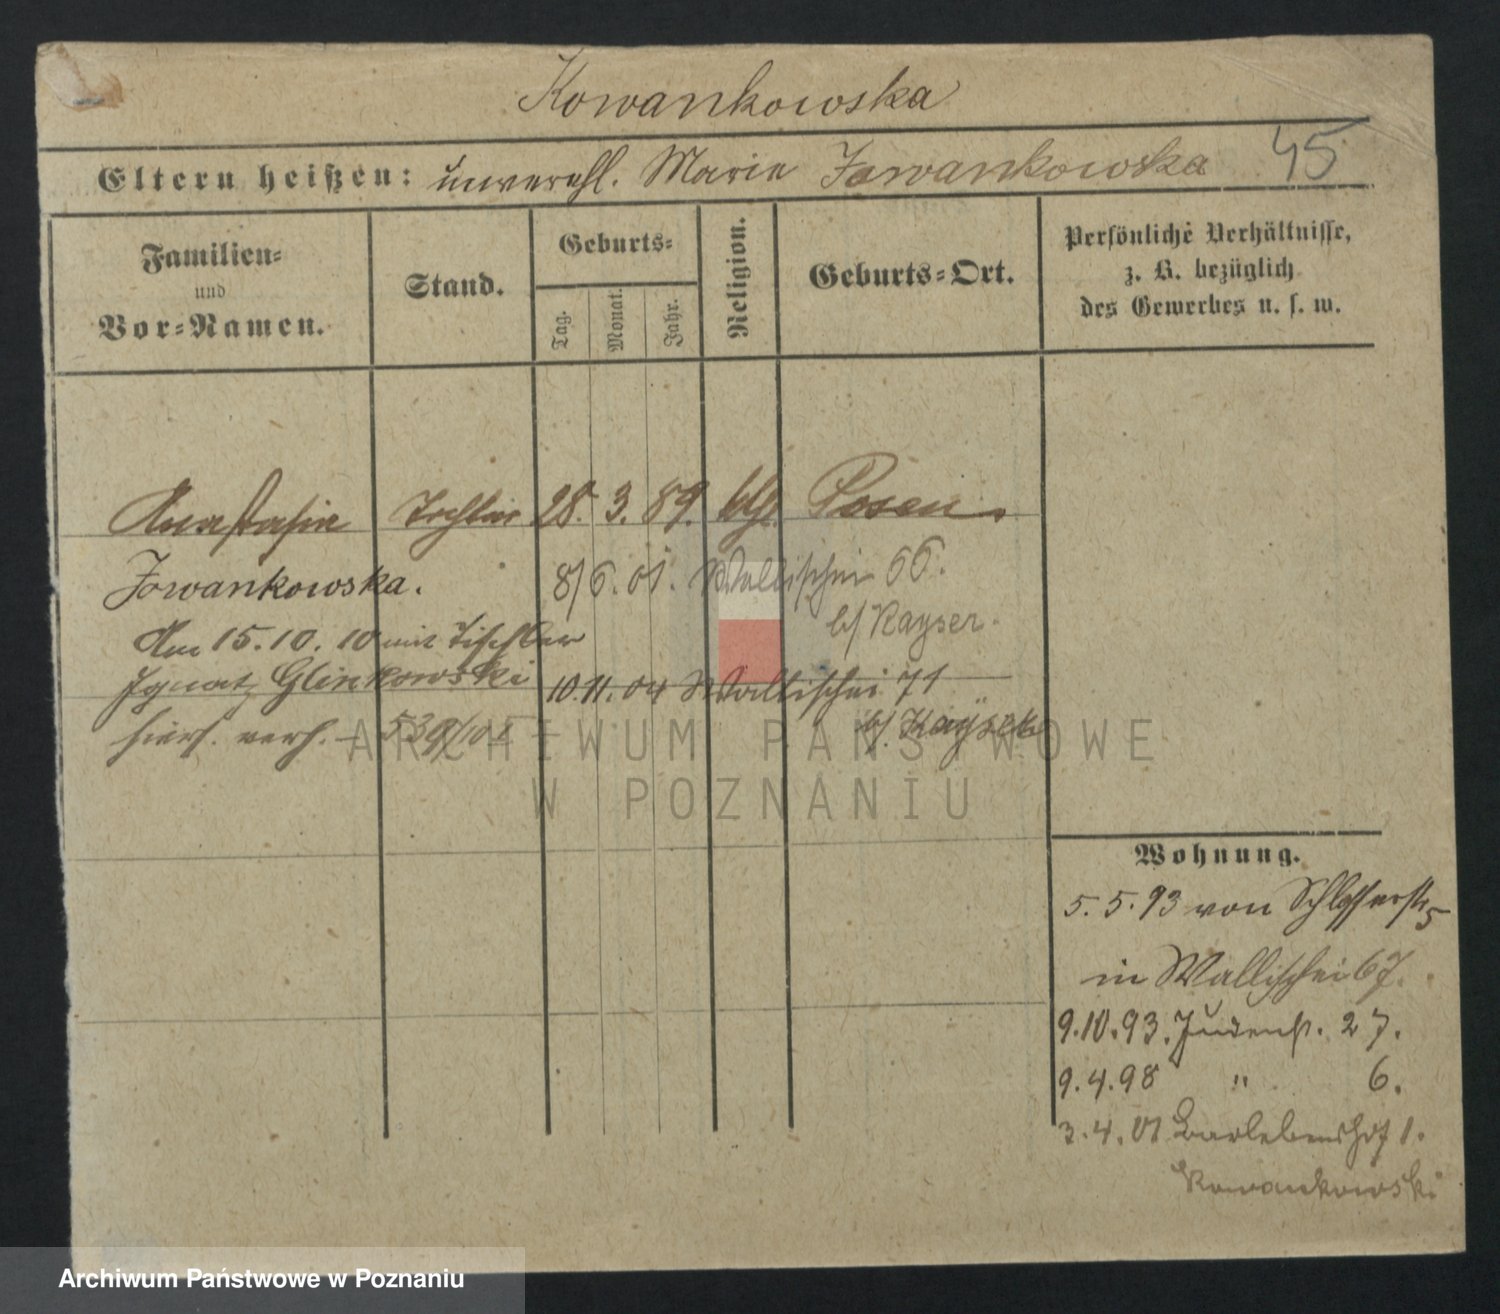 Kowankowska
Eltern heißen: unverehl. Marie Jowankowska 45
Familien-
und
Vor-Namen.
Stand.
Geburts-
Tag.
Monat.
Jahr.
Religion.
Geburts-Ort.
Persönliche Verhältnisse,
z. B. bezüglich
des Gewerbes u. s. w.
Anastasia Tochter 28. 3. 89. kth. Posen
Jowankowska. 8/6. 01. Wallischei 66.
b/ Kayser.
Am 15.10. 10 mit Tischler
Ignatz Glinkowski 10.11.04 Wallischei 71
hiers. verh. - 539/01 - b/. Kayser
ARCHIWUM PAŃSTWOWE
W POZNANIU
Wohnung.
5. 5. 93 von Schlosserstr 5
in Wallischei 67.
9.10.93. Judenst. 27.
9.4.98 " 6.
3.4.01 Barlebenshof 1.
Kowankowski
Archiwum Państwowe w Poznaniu